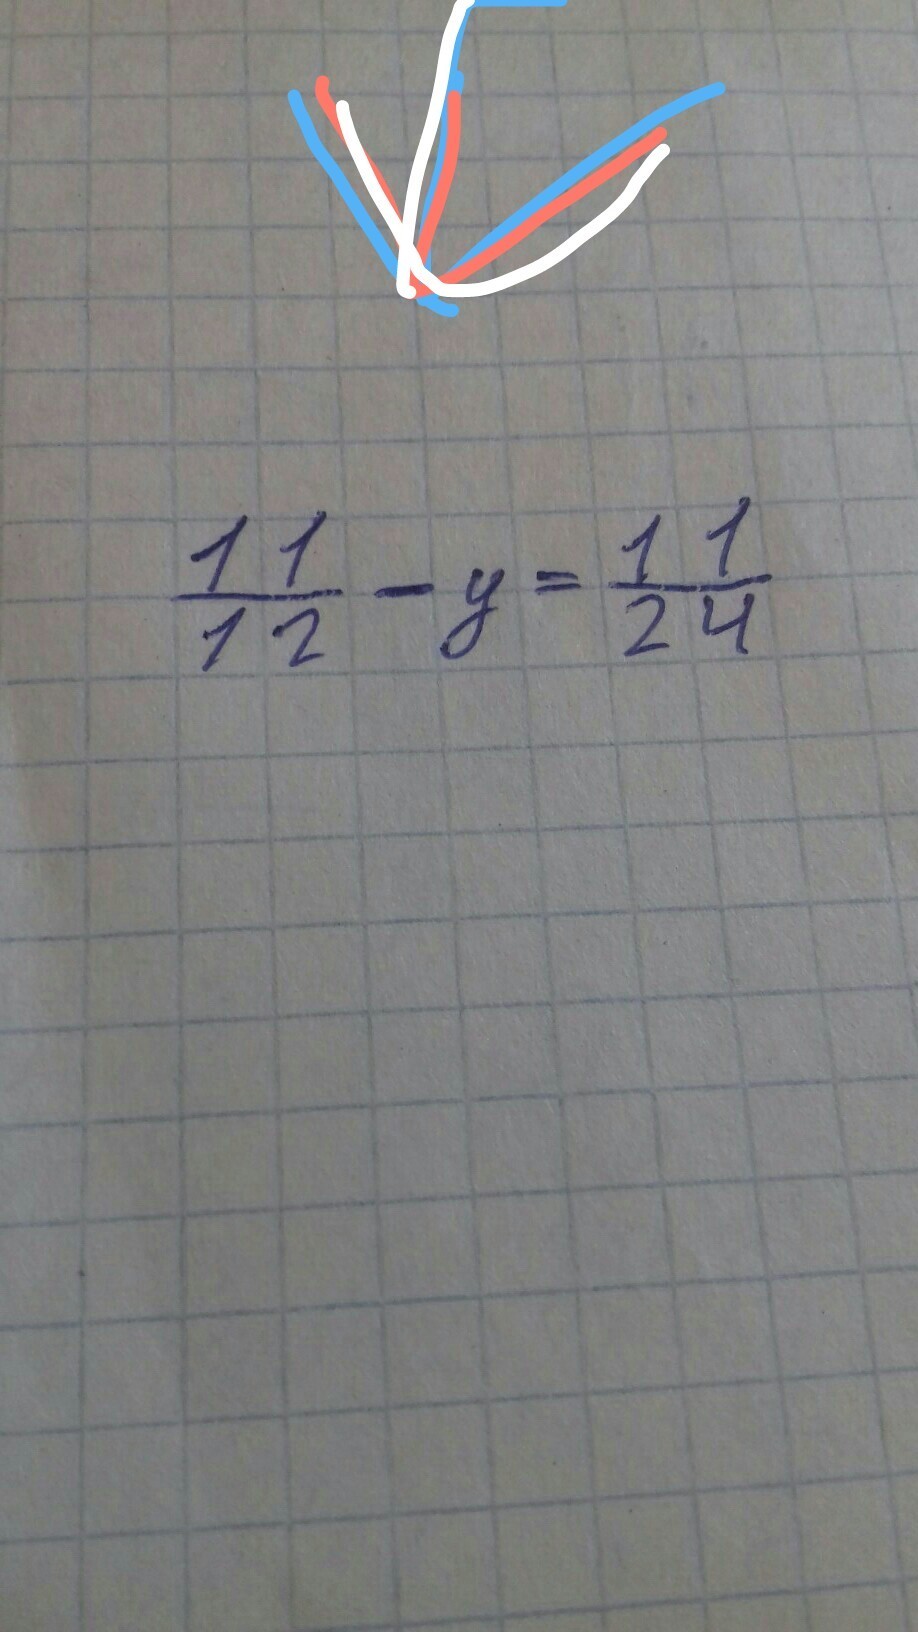 11/12 - y = 11/24